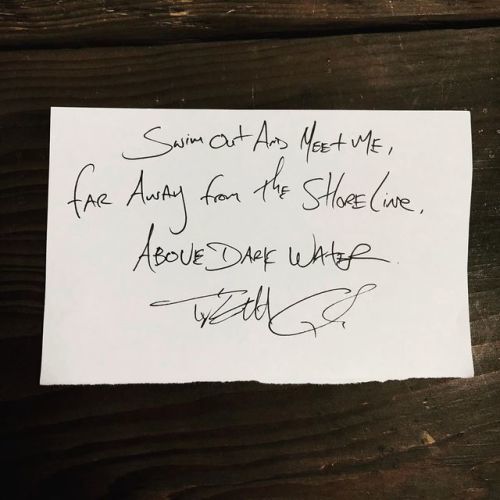 Swim Out And Meet Me,
Far Away from the Shoreline,
Above Dark Water.